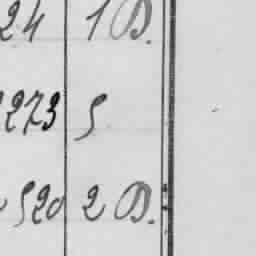 24 1 D.
273 5
520 2 D.